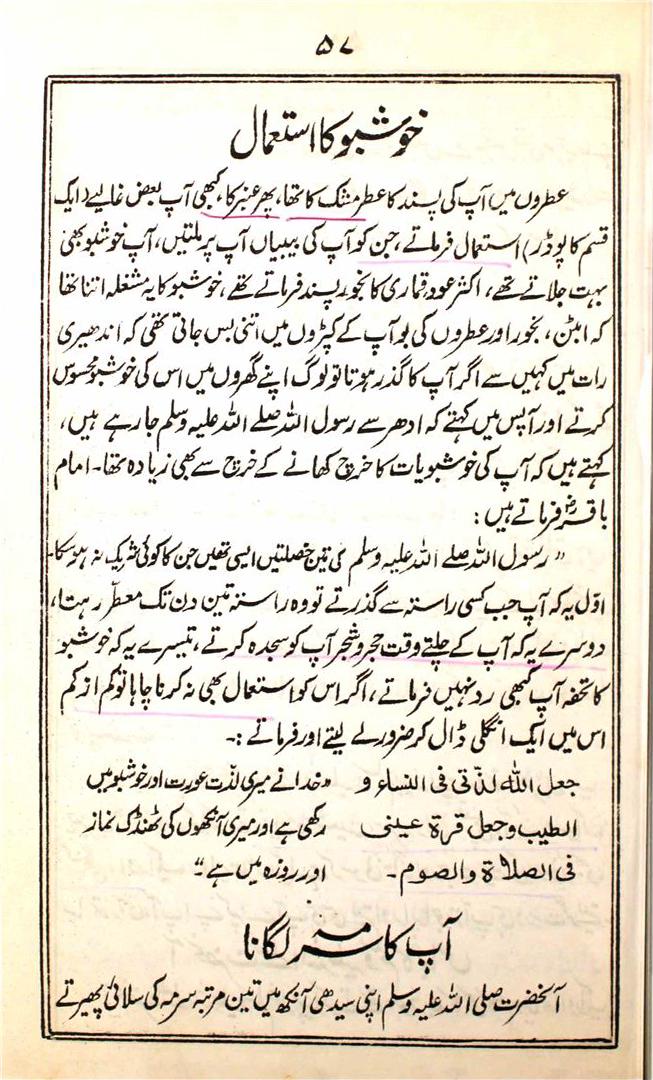 ۵۷
خوشبو کا استعمال
عطروں میں آپ کی پسند کا عطر مشک کا تھا، پھر عنبر کا، کبھی آپ بعض غالیے (ایک
قسم کا پوڈر) استعمال فرماتے، جن کو آپ کی بیبیاں آپ پر ملتیں، آپ خوشبو بھی
بہت جلاتے تھے، اکثر عود قماری کا بخور پسند فرماتے تھے، خوشبو کا یہ مشغلہ اتنا تھا
کہ ابٹن، بخور اور عطروں کی بو آپ کے کپڑوں میں اتنی بس جاتی تھی کہ اندھیری
رات میں کہیں سے اگر آپ کا گذر ہوتا تو لوگ اپنے گھروں میں اس کی خوشبو محسوس
کرتے اور آپس میں کہتے کہ ادھر سے رسول اللہ صلے اللہ علیہ وسلم جا رہے ہیں،
کہتے ہیں کہ آپ کی خوشبویات کا خرچ کھانے کے خرچ سے بھی زیادہ تھا۔ امام
باقرؓ فرماتے ہیں:
” رسول اللہ صلے اللہ علیہ وسلم کی تین خصلتیں ایسی تھیں جن کا کوئی شریک نہ ہو سکا۔
اوّل یہ کہ آپ جب کسی راستہ سے گذرتے تو وہ راستہ تین دن تک معطر رہتا،
دوسرے یہ کہ آپ کے چلتے وقت حجر و شجر آپ کو سجدہ کرتے، تیسرے یہ کہ خوشبو
کا تحفہ آپ کبھی رد نہیں فرماتے، اگر اس کو استعمال بھی نہ کرنا چاہا تو کم از کم
اس میں ایک انگلی ڈال کر ضرور لے لیتے اور فرماتے :۔
جعل اللہ لذّتی فی النساء و
الطیب وجعل قرۃ عینی
فی الصلاۃ والصوم۔
”خدا نے میری لذّت عورت اور خوشبو میں
رکھی ہے اور میری آنکھوں کی ٹھنڈک نماز
اور روزہ میں ہے“
آپ کا سرمہ لگانا
آنحضرت صلی اللہ علیہ وسلم اپنی سیدھی آنکھ میں تین مرتبہ سرمہ کی سلائی پھیرتے